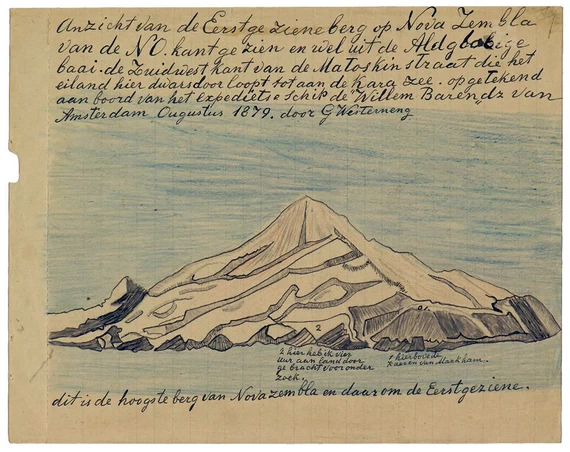 Anzicht van de Eerstgezieneberg op Nova Zembla
van de NO. kant gezien en wel uit de
baai. de Zuidwest kant van de Matoskinstraat die het
eiland hier dwarsdoor loopt tot aan de Kara zee. opgetekend
aan boord van het Expeditie schip de "Willem Barendz van
Amsterdam Augustus 1879. door G Westerneng
2
2 hier heb ik vier
uur aan land door
gebracht voor onder
zoek.
1 hierboven
van Markham.
dit is de hoogste berg van Nova zembla en daarom de Eerstgeziene.